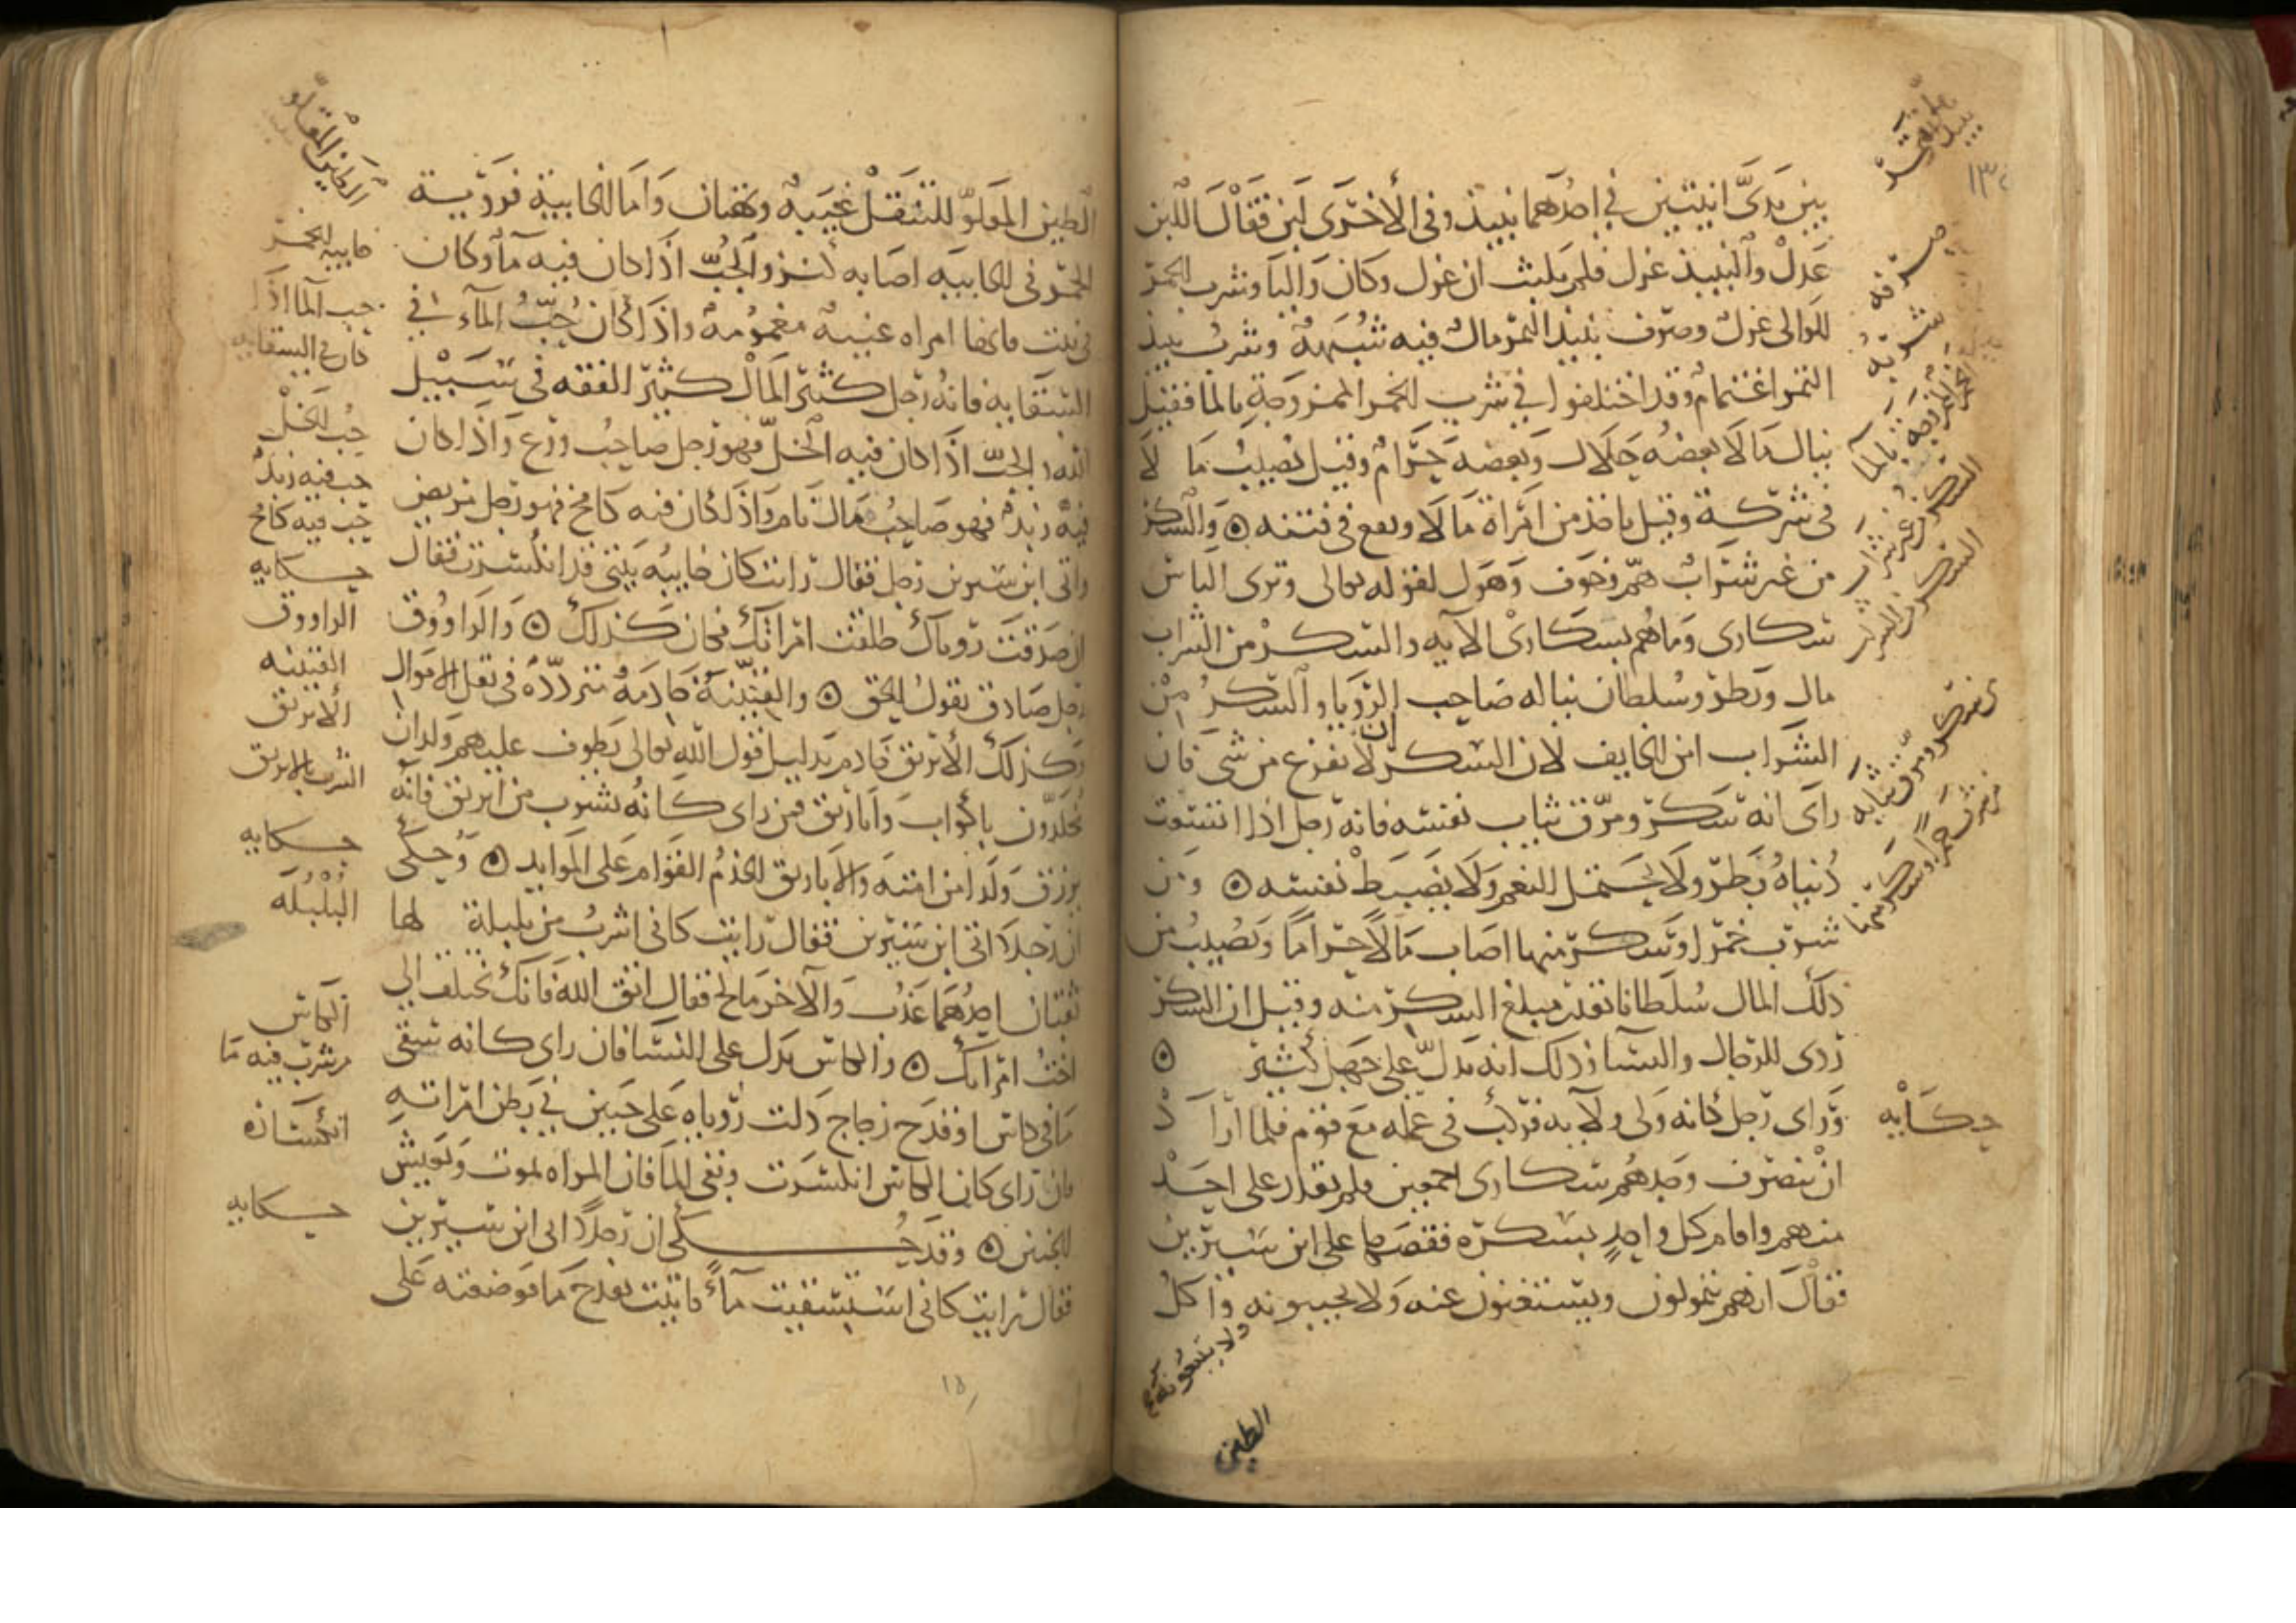 بين يدي انيتين في احدهما نبيذ وفي الاخرى لبن فقال اللبن
عدل والنبيذ عزل فلم يلبث ان عزل وكان واليا وشرب الخمر
للوالى عزل وصرف نبيذ التمر مال فيه شبهة وشرب نبيذ
التمر اغتمام وقد اختلفوا في شرب الخمر الممزوجة بالما فقيل
ينال مالا بعضه حلال وبعضه حرام وقيل يصيب ما لا
فى شركة وقيل ياخذ من امراة مالا ويقع في فتنه ۞ والسكر
من غير شراب هم وخوف وهول لقوله تعالى وترى الناس
سكارى وما هم بسكارى الايه والسكر من الشراب
مال وبطر وسلطان يناله صاحب الرويا والسكر من
الشراب امن الخايف لان السكران لا يفزع من شى فان
راى انه سكر ومزق ثياب نفسه فانه رجل اذا اتسعت
دنياه بطر ولا يحتمل النعم ولا يضبط نفسه ۞ ومن
شرب خمرا وسكر منها اصاب مالا حراما ويصيب من
ذلك المال سلطانا بقدر مبلغ السكر منه وقيل ان السكر
ردى للرجال والنسا وذلك انه يدل على جهل كثير ۞
وراى رجل كانه ولى ولاية فركب في عمله مع قوم فلما اراد
ان ينصرف وجدهم سكارى اجمعين فلم يقدر على احد
منهم واقام كل واحد بسكره فقصها على ابن سيرين
فقال انهم يتمولون ويستغنون عنه ولا يجيبونه واكل
ولا يتبعونه
الطين
حكايه
الطين المقلو للتنقل غيبة وبهتان واما الخابية فرؤية
الخمر فى الخابيه اصابه كنز والجب اذا كان فيه ما وكان
في بيت فانها امراه غنيه مغمومه واذا كان جب الماء في
السقايه فانه رجل كثير المال كثير النفقه فى سبيل
الله والجب اذا كان فيه الخل فهو رجل صاحب ورع واذا كان
فيه زبد فهو صاحب مال نام واذا كان فيه كامخ فهو رجل مريض
واتى ابن سيرين رجل فقال رايت كان خابيه بيتى قد انكسرت فقال
ان صدقت روياك طلقت امراتك فكان كذلك ۞ والراووق
رجل صادق يقول الحق ۞ والقنينة خادمة مترددة فى نقل الاموال
وكذلك الابريق خادم بدليل قول الله تعالى يطوف عليهم ولدان
مخلدون باكواب واباريق فمن راى كانه يشرب من ابريق فانه
يرزق ولدا من امته والاباريق الخدم القوام على الموايد ۞ وحكى
ان رجلا اتى ابن سيرين فقال رايت كانى اشرب من بلبلة لها
ثقبان احدهما عذب والاخر مالح فقال اتق الله فانك تختلف الى
اخت امراتك ۞ والكاس يدل على النسا فان راى كانه سقى
ما فى كاس او قدح زجاج دلت روياه على جنين في بطن امراته
فان راى كان الكاس انكسرت وبقى الما فان المراه تموت ويعيش
الجنين ۞ وقد حكى ان رجلا اتى ابن سيرين
فقال رايت كانى استسقيت ماء فاتيت بقدح ما فوضعته على
الطين المقلو
خابيه الخمر
جب الما اذا
كان في السقايه
جب الخل
جب فيه زبد
جب فيه كامخ
حكايه
الراووق
القنينه
الابريق
الشرب بالابريق
حكايه
البلبله
الكاس
من شرب فيه ما
انكساره
حكايه